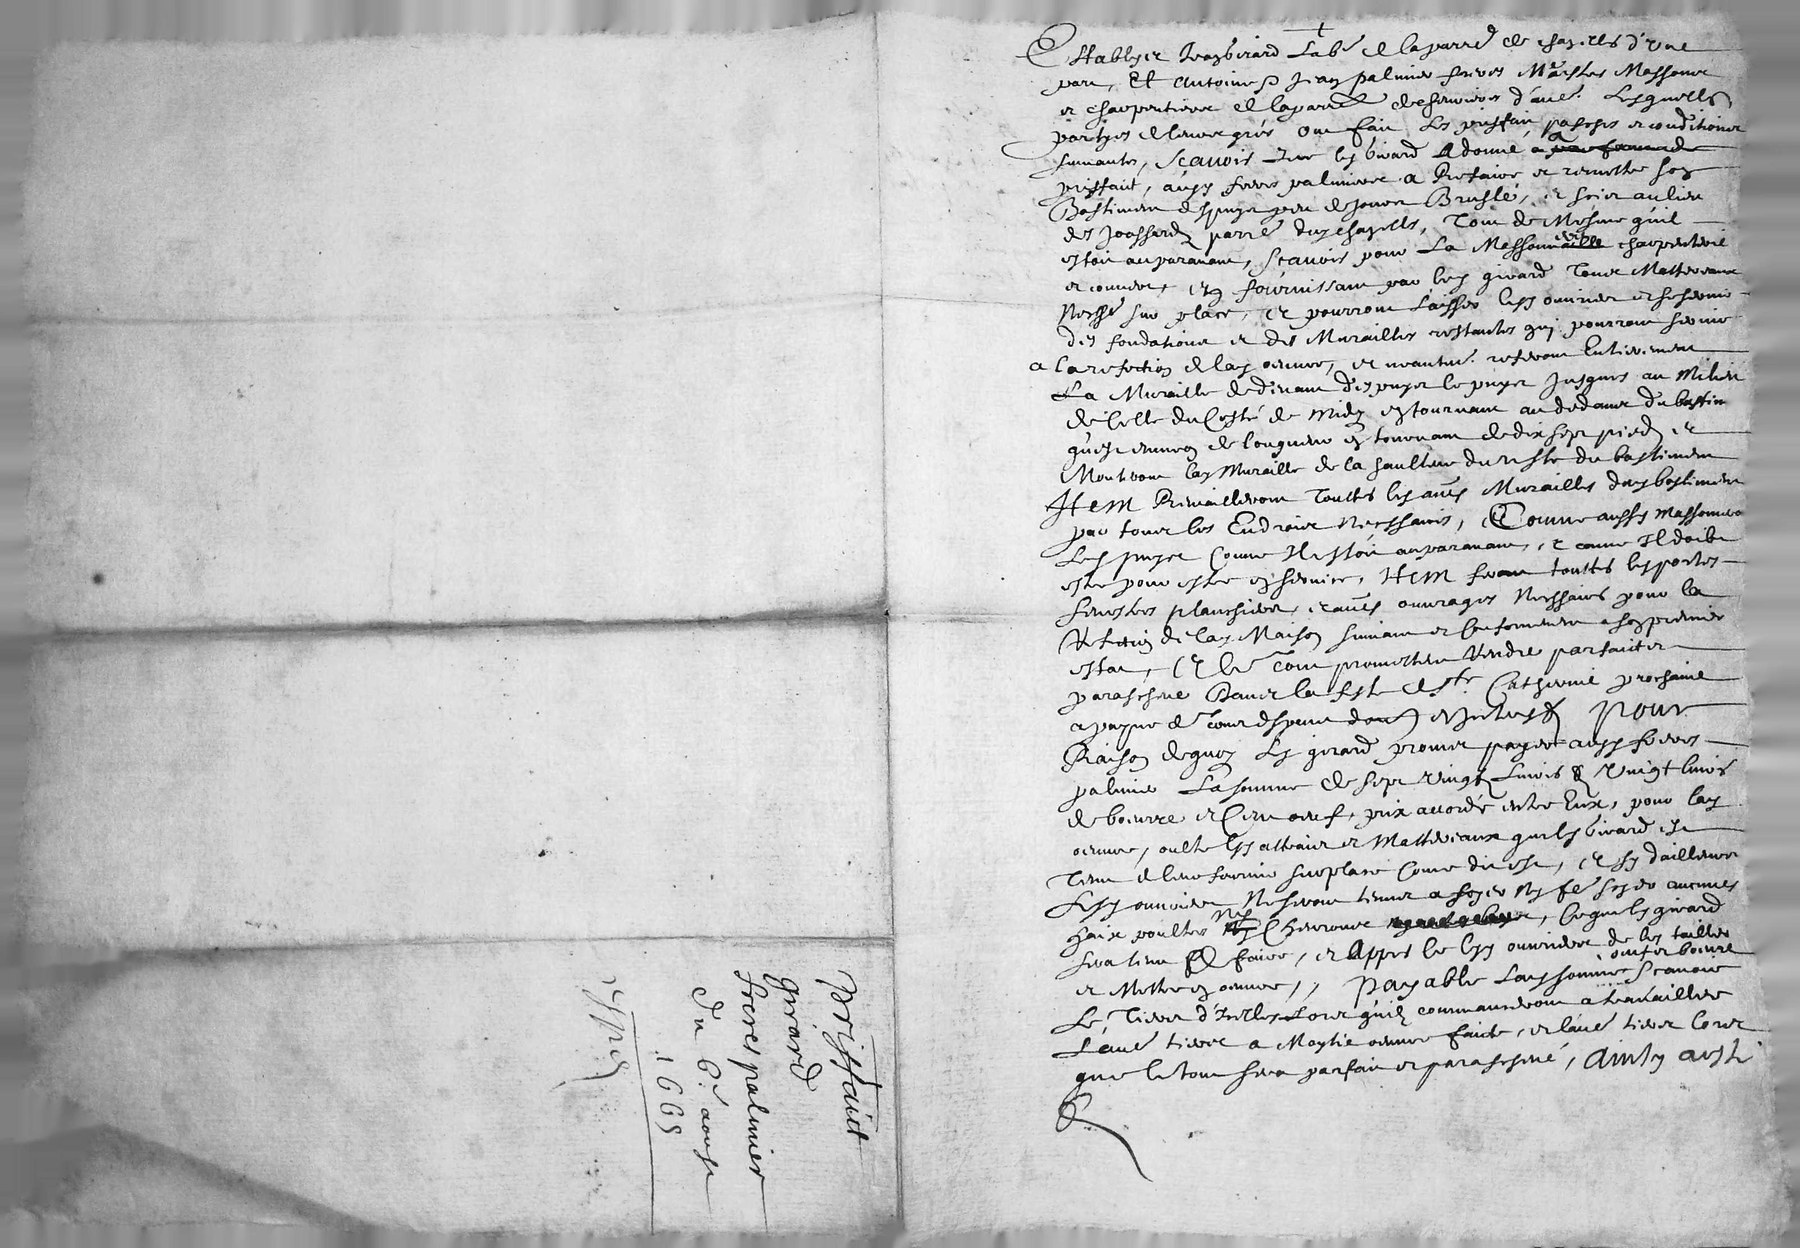 Establys Jean Girard lab.r de la parre de chazelles d'une
part, Et Antoine & Jean palmier freres Maistres Massons
et charpentiers de la parre de d'autre. Lesquells
partyes de leurs grés ont fait les prisfait, pactes et conditions
suivantes, Scavoir que led Girard A donné a
prisfait, ausd freres palmiers a Refaire et remettre son
Bastiment puis peu de jours Bruslé, et scis au lieu
des Joassards parre dud chazelles, Tout de Mesme quil
estoit auparavant, Scavoir pour La Massonnerie charpenterie
et couvert, en fournissant par led girard Tous Matteriaux
Ness.e sur place, et pourront Laisser lesd ouvriers et se servir
des fondations et des Murailles restantes quj pourront servir
a la refection de lad oeuvre, et neantm. referont Entierement
La Muraille de devant jusques au Milieu
de Celle du Costé de Midy en tournant au dedans du bastim
quest environ de longueur en tournant de dix sept pieds et
Monteront lad Muraille de la haulteur du reste du bastiment
Item Remailleront Touttes les aues Murailles dud bastiment
par tous les Endroits Nessaires, Comme aussy massonneront
Led Comme Il estoit auparavant, et comme Il doibt
estre pour estre en service, Item feront touttes les portes
fenestres planchiers, et aues ouvrages Nessaires pour la
Refection de lad Maison suivant et Conformement a son premier
estat, Et le tout promettent Rendre parfait et
parachevé Dans la feste de Ste Catherine prochaine
a payne de tous despens domages Pour
Raison dequoy Led girard promet payer ausd freres
palmier La somme de sept vingts Livres & vingt livres
de beurre et Cent oeufs, prix accordé entre Eux, pour lad
oeuvre, oultre lesd attraits et Matteriaux que led Girard est
Tenu de leur fournir sur place Comme dit est, et sy dailleurs
Lesd ouvriers Ne seront tenus a soyer Ny fe soyer aucunes
haix poultres Ny Chevrons, Ce que led girard
sera tenu de faire, et Appres le lesd ouvriers de les tailler
et Mettre en oeuvre, Payable Lad somme oeufs et beurre Scavoir
Le Tiers d'Icelles Lors quils commanceront a travaillier
L'autre tiers a Moytié oeuvre faicte, et l'aue tiers lors
que le tout sera parfait et parachevé, Ainsy a esté
prisfait
girard
freres palmier
du 6.e aoust
1665